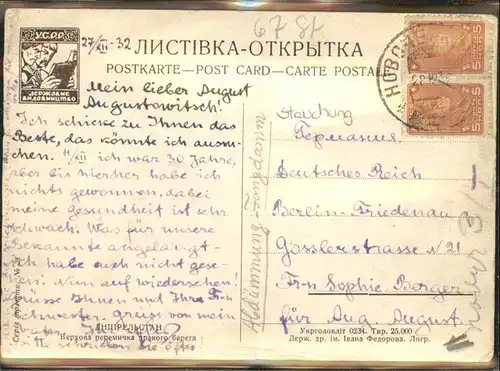 У.С.Р.Р.
ДЕРЖАВНЕ
ВИДАВНИЦТВО
27/XII-32
67 St
ЛИСТІВКА-ОТКРЫТКА
POSTKARTE—POST CARD—CARTE POSTALE
5 5
5 5
Mein lieber August
Augustowitsch!
Ich schicke zu Ihnen das
Beste, das könnte ich aussu-
chen. 11/XII ich war 30 Jahre,
aber bis hierher habe ich
nichts gewonnen, dabei
meine Gesundheit ist sehr
schwach. Was für unsere
Bekannte angelangt-
ich habe euch nicht gese-
hen. Nun auf wiedersehen!
Grüsse Ihnen und Ihre Fr-n
Schwester. Gruss von mein
Vater.
Stauchung
Германия
Deutsches Reich
Berlin-Friedenau
Gosslerstrasse N 21
Fr-n Sophie Berger
für Aug. August.
ДНІПРЕЛЬСТАН
Верхова перемичка правого берега
Укрголовліт 0234. Тир. 25.000
Держ. др. ім. Івана Федорова. Лнгр.